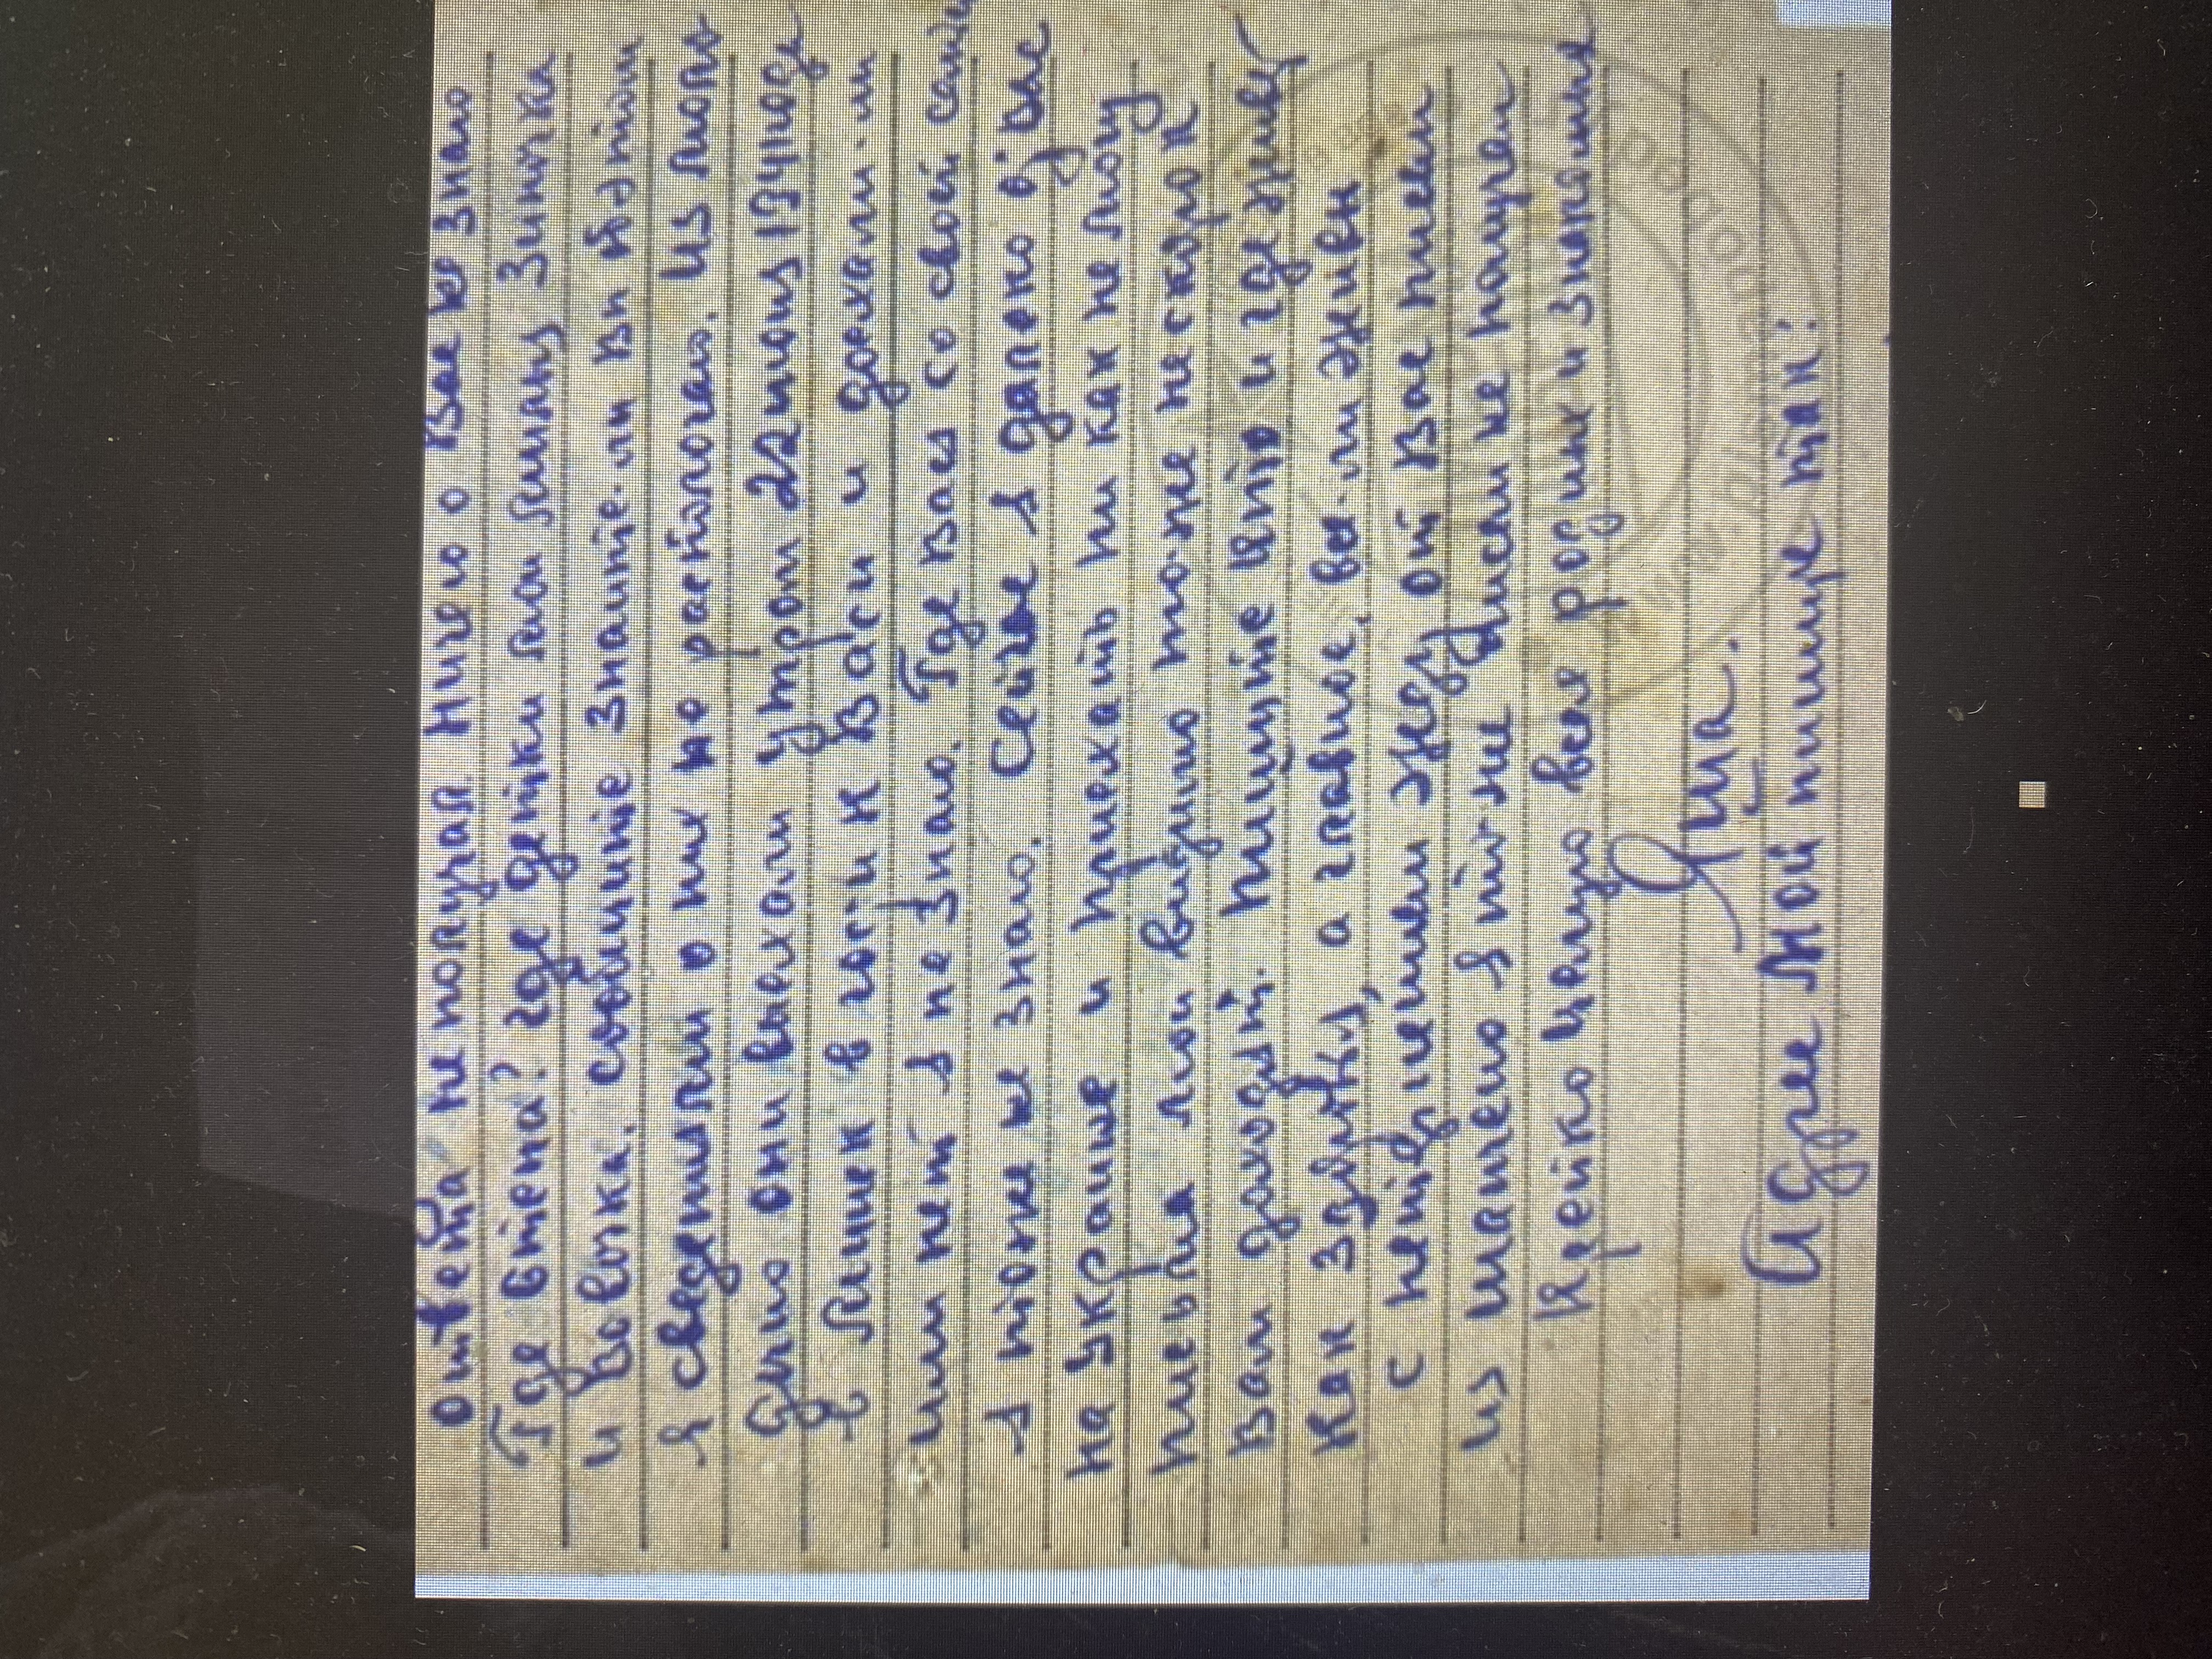 ответа не получал. Ничего о Вас не знаю
Где Степа? где детки мои милаиз Зиночка
и Вовочка. сообщите знаите-ли вы об этом
я сведениями о них не распологаю. из моего
дома они выехали утром 22 июня 1941 года
в Минск в гости к Васи и доехали-ли
или нет я не знаю. Где Васз со своей
я тоже не знаю. Сейчас я далеко от вас
на Украине и приехать ни как не могу
письма мои видимо то-же не скоро к
Вам доходят. пишите кто и где живет
Как здоровя, а главное, все-ли живы
с нетерпением жду от Вас писем
из писем не получал
Крепко целую всех родных и знакомых
Адрес Мой пишите так: